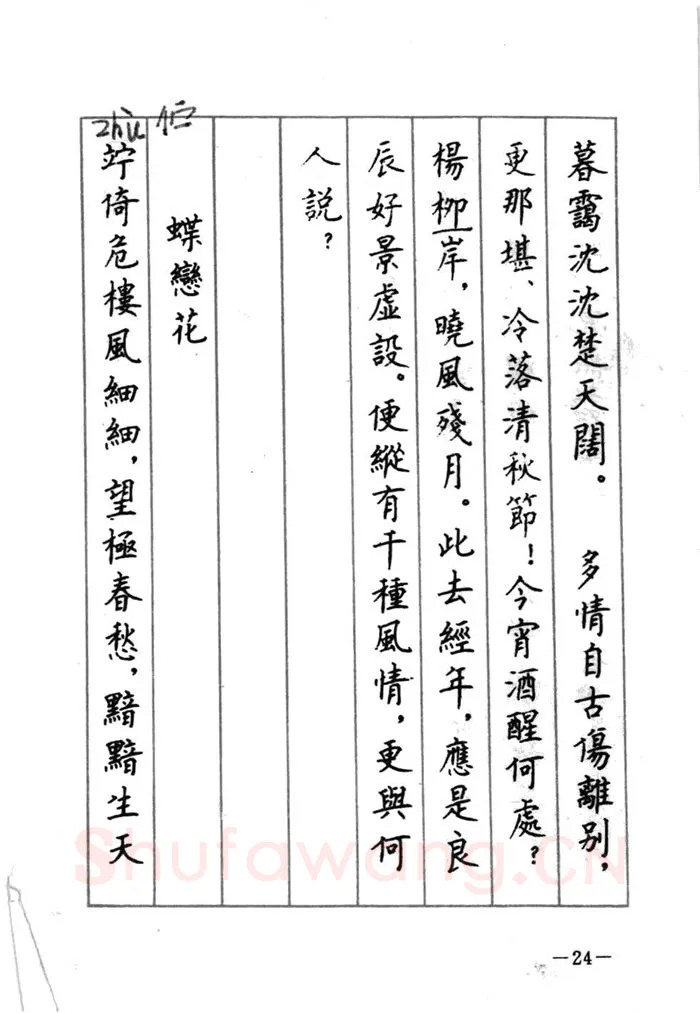 暮靄沈沈楚天闊。 多情自古傷離別，
更那堪、冷落清秋節！今宵酒醒何處？
楊柳岸，曉風殘月。此去經年，應是良
辰好景虛設。便縱有千種風情，更與何
人說？
蝶戀花
zhù 佇
竚倚危樓風細細，望極春愁，黯黯生天
Shufawang.CN
—24—